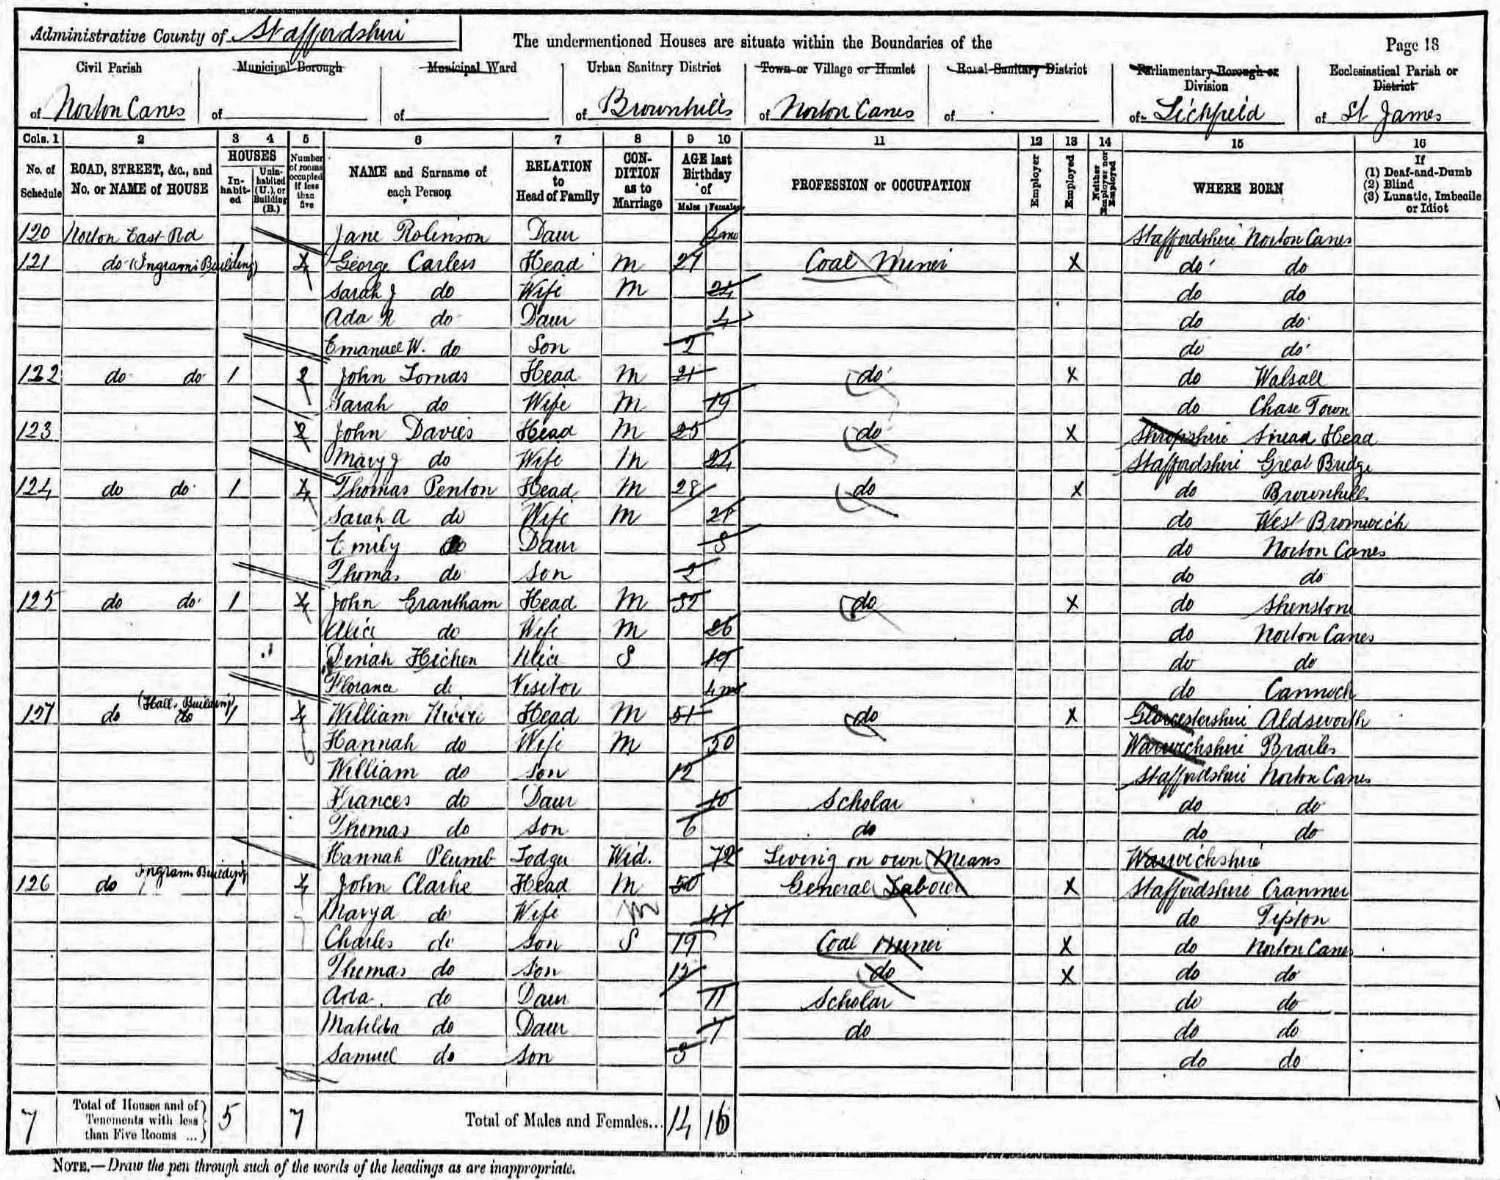 Administrative County of Staffordshire
The undermentioned Houses are situate within the Boundaries of the
Page 18
Civil Parish of Norton Canes
Municipal Borough of
Municipal Ward of
Urban Sanitary District of Brownhills
Town or Village or Hamlet of Norton Canes
Rural Sanitary District of
Parliamentary Borough or Division of Lichfield
Ecclesiastical Parish or District of St James
Cols. 1 2 3 4 5 6 7 8 9 10 11 12 13 14 15 16
No. of Schedule
ROAD, STREET, &c., and No. or NAME of HOUSE
HOUSES
Inhabited
Uninhabited (U.), or Building (B.)
Number of rooms occupied if less than five
NAME and Surname of each Person
RELATION to Head of Family
CONDITION as to Marriage
AGE last Birthday of
Males Females
PROFESSION or OCCUPATION
Employer
Employed
Neither Employer nor Employed
WHERE BORN
If (1) Deaf-and-Dumb (2) Blind (3) Lunatic, Imbecile or Idiot
120 Norton East Rd Jane Robinson Daur Staffordshire Norton Canes
121 do (Ingrams Building) 1 4 George Carless Head M 29 Coal Miner X do do
Sarah J do Wife M 24 do do
Ada do Daur 4 do do
Emanuel W. do Son 2 do do
122 do do 1 2 John Lomas Head M 21 do X do Walsall
Sarah do Wife M 19 do Chase Town
123 2 John Davies Head M 25 do X Shropshire Snead Head
Mary J do Wife M 24 Staffordshire Great Bridge
124 do do 1 4 Thomas Penton Head M 28 do X do Brownhills
Sarah A do Wife M do West Bromwich
Emily do Daur do Norton Canes
Thomas do Son 2 do do
125 do do 1 4 John Grantham Head M 32 do X do Shenstone
Alice do Wife M 26 do Norton Canes
Dinah Hichen S 19 do do
Florance do Visitor 4 mo do Cannock
157 do (Hall Building) do 1 4 William Head M 51 do X Glorcestershire Aldsworth
Hannah do Wife M 50 Warwickshire Brailes
William do Son 12 Staffordshire Norton Canes
Frances do Daur 10 Scholar do do
Thomas do Son 6 do do do
Hannah Plumb Lodger Wid. 72 Living on own Means Warwickshire
126 do Ingram Building 1 4 John Clarke Head M 50 General Labourer X Staffordshire Cranmer
Mary A do Wife M 47 do Tipton
Charles do Son S 19 Coal Miner X do Norton Canes
Thomas do Son do X do do
Ada do Daur 11 Scholar do do
Matilda do Daur 7 do do do
Samuel do Son 3 do do
7 Total of Houses and of Tenements with less than Five Rooms ... 5 7 Total of Males and Females... 14 16
NOTE.—Draw the pen through such of the words of the headings as are inappropriate.